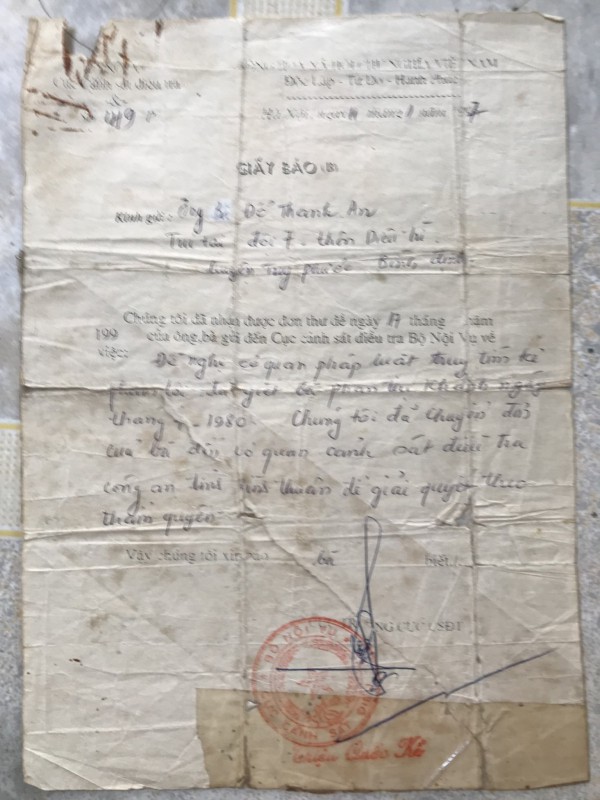 Cục Cảnh sát điều tra
CỘNG HÒA XÃ HỘI CHỦ NGHĨA VIỆT NAM
Độc Lập - Tự Do - Hạnh Phúc
Số
Hà Nội, ngày tháng năm 1997
GIẤY BÁO
Kính gửi: Ông Bà Đỗ Thanh An
Trú tại đội 7. thôn Diêu trì
huyện Tuy phước Bình định
Chúng tôi đã nhận được đơn thư đề ngày 17 tháng năm
199 của ông, bà gửi đến Cục cảnh sát điều tra Bộ Nội Vụ về
việc: Đề nghị cơ quan pháp luật truy tìm kẻ
phạm tội giết bà phan thị Khanh ngày
tháng - 1980. Chúng tôi đã chuyển đơn
của bà đến cơ quan cảnh sát điều tra
công an tỉnh Bình thuận để giải quyết theo
thẩm quyền
Vậy chúng tôi xin báo bà biết./.
BỘ NỘI VỤ
CẢNH SÁT
Quốc